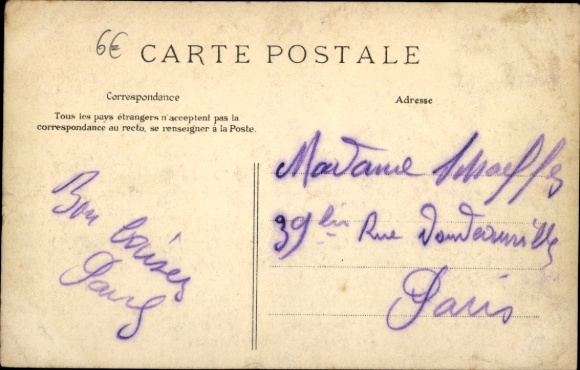 6€
CARTE POSTALE
Correspondance
Adresse
Tous les pays étrangers n'acceptent pas la
correspondance au recto, se renseigner à la Poste.
Bon baiser
Paul
Madame Schaeffer
39 bis Rue Doudeauville
Paris